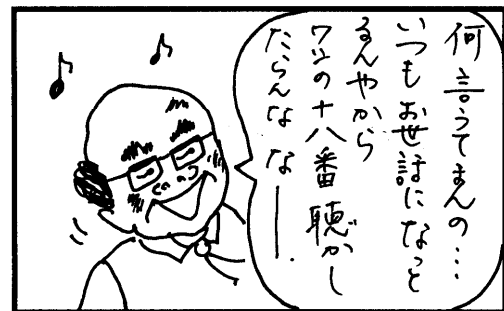 何言うてまんの…
いつもお世話になっと
るんやから
ワシの十八番聴かし
たらんなな──.